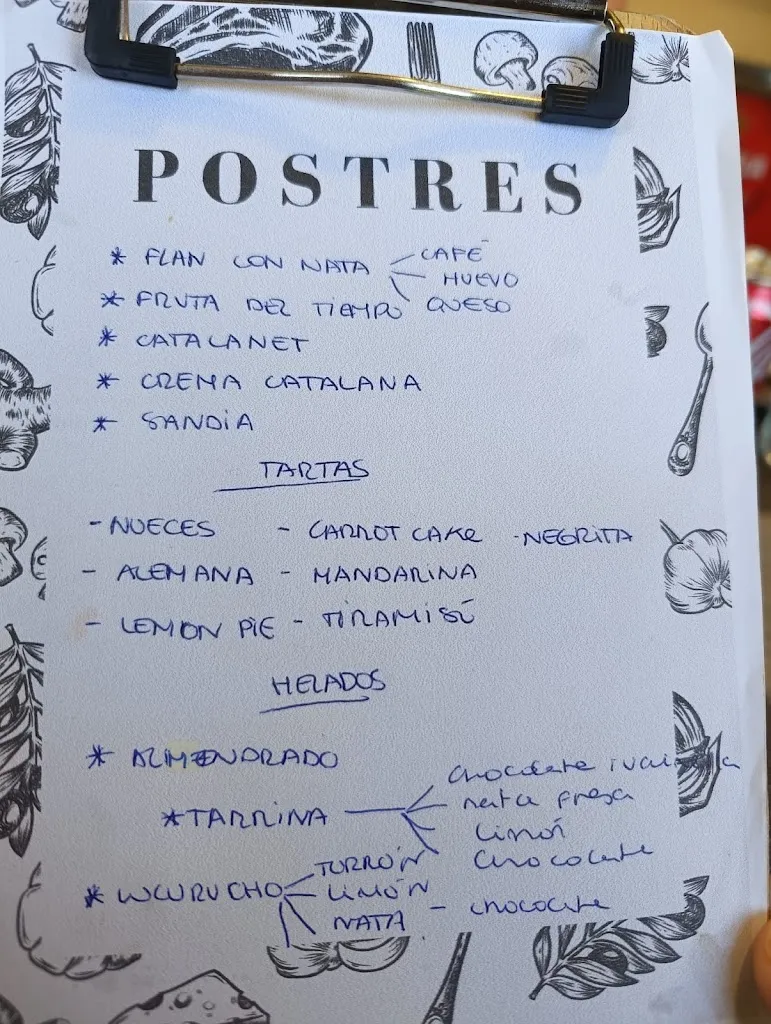 POSTRES
* FLAN CON NATA CAFÉ
HUEVO
* FRUTA DEL TIEMPO QUESO
* CATALANET
* CREMA CATALANA
* SANDIA
TARTAS
- NUECES - CARROT CAKE - NEGRITA
- ALEMANA - MANDARINA
- LEMON PIE - TIRAMISÚ
HELADOS
* ALMENDRADO
chocolate
* TARRINA nata fresa
Limón
chocolate
* CUCURUCHO TURRÓN
LIMÓN
NATA - chocolate